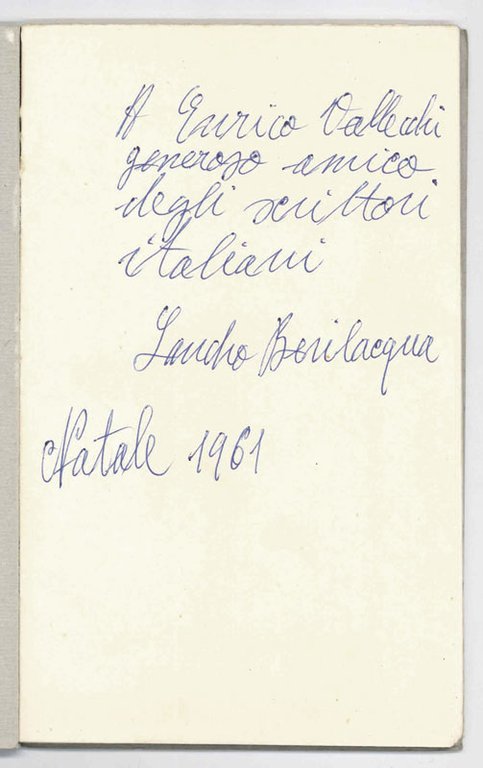 A Enrico Vallecchi
generoso amico
degli scrittori
italiani
Sandro Bevilacqua
Natale 1961